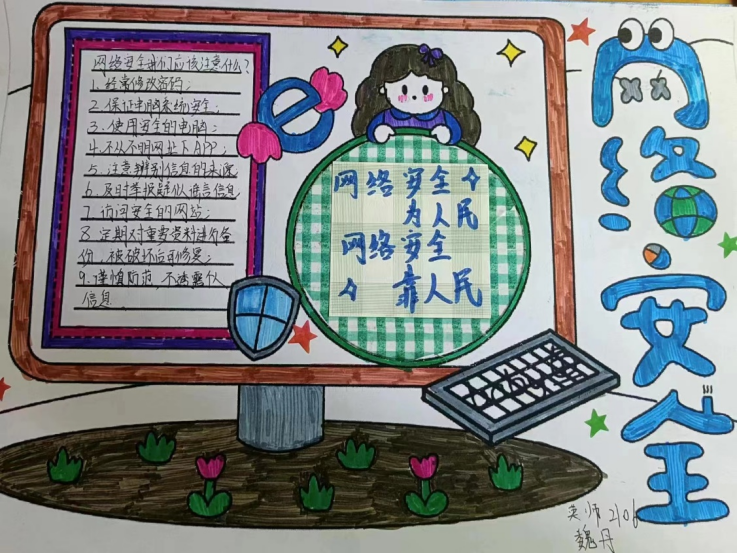 网络安全我们应该注意什么？
1.经常修改密码；
2.保证电脑系统安全；
3.使用安全的电脑；
4.不从不明网址下APP；
5.注意辨别信息的来源
6.及时举报疑似谣言信息
7.访问安全的网站；
8.定期对重要资料进行备
份，被破坏后可修复；
9.谨慎防范，不透露个人
信息
e
网络安全
为人民
网络安全
靠人民
网络安全
英师2106
魏丹